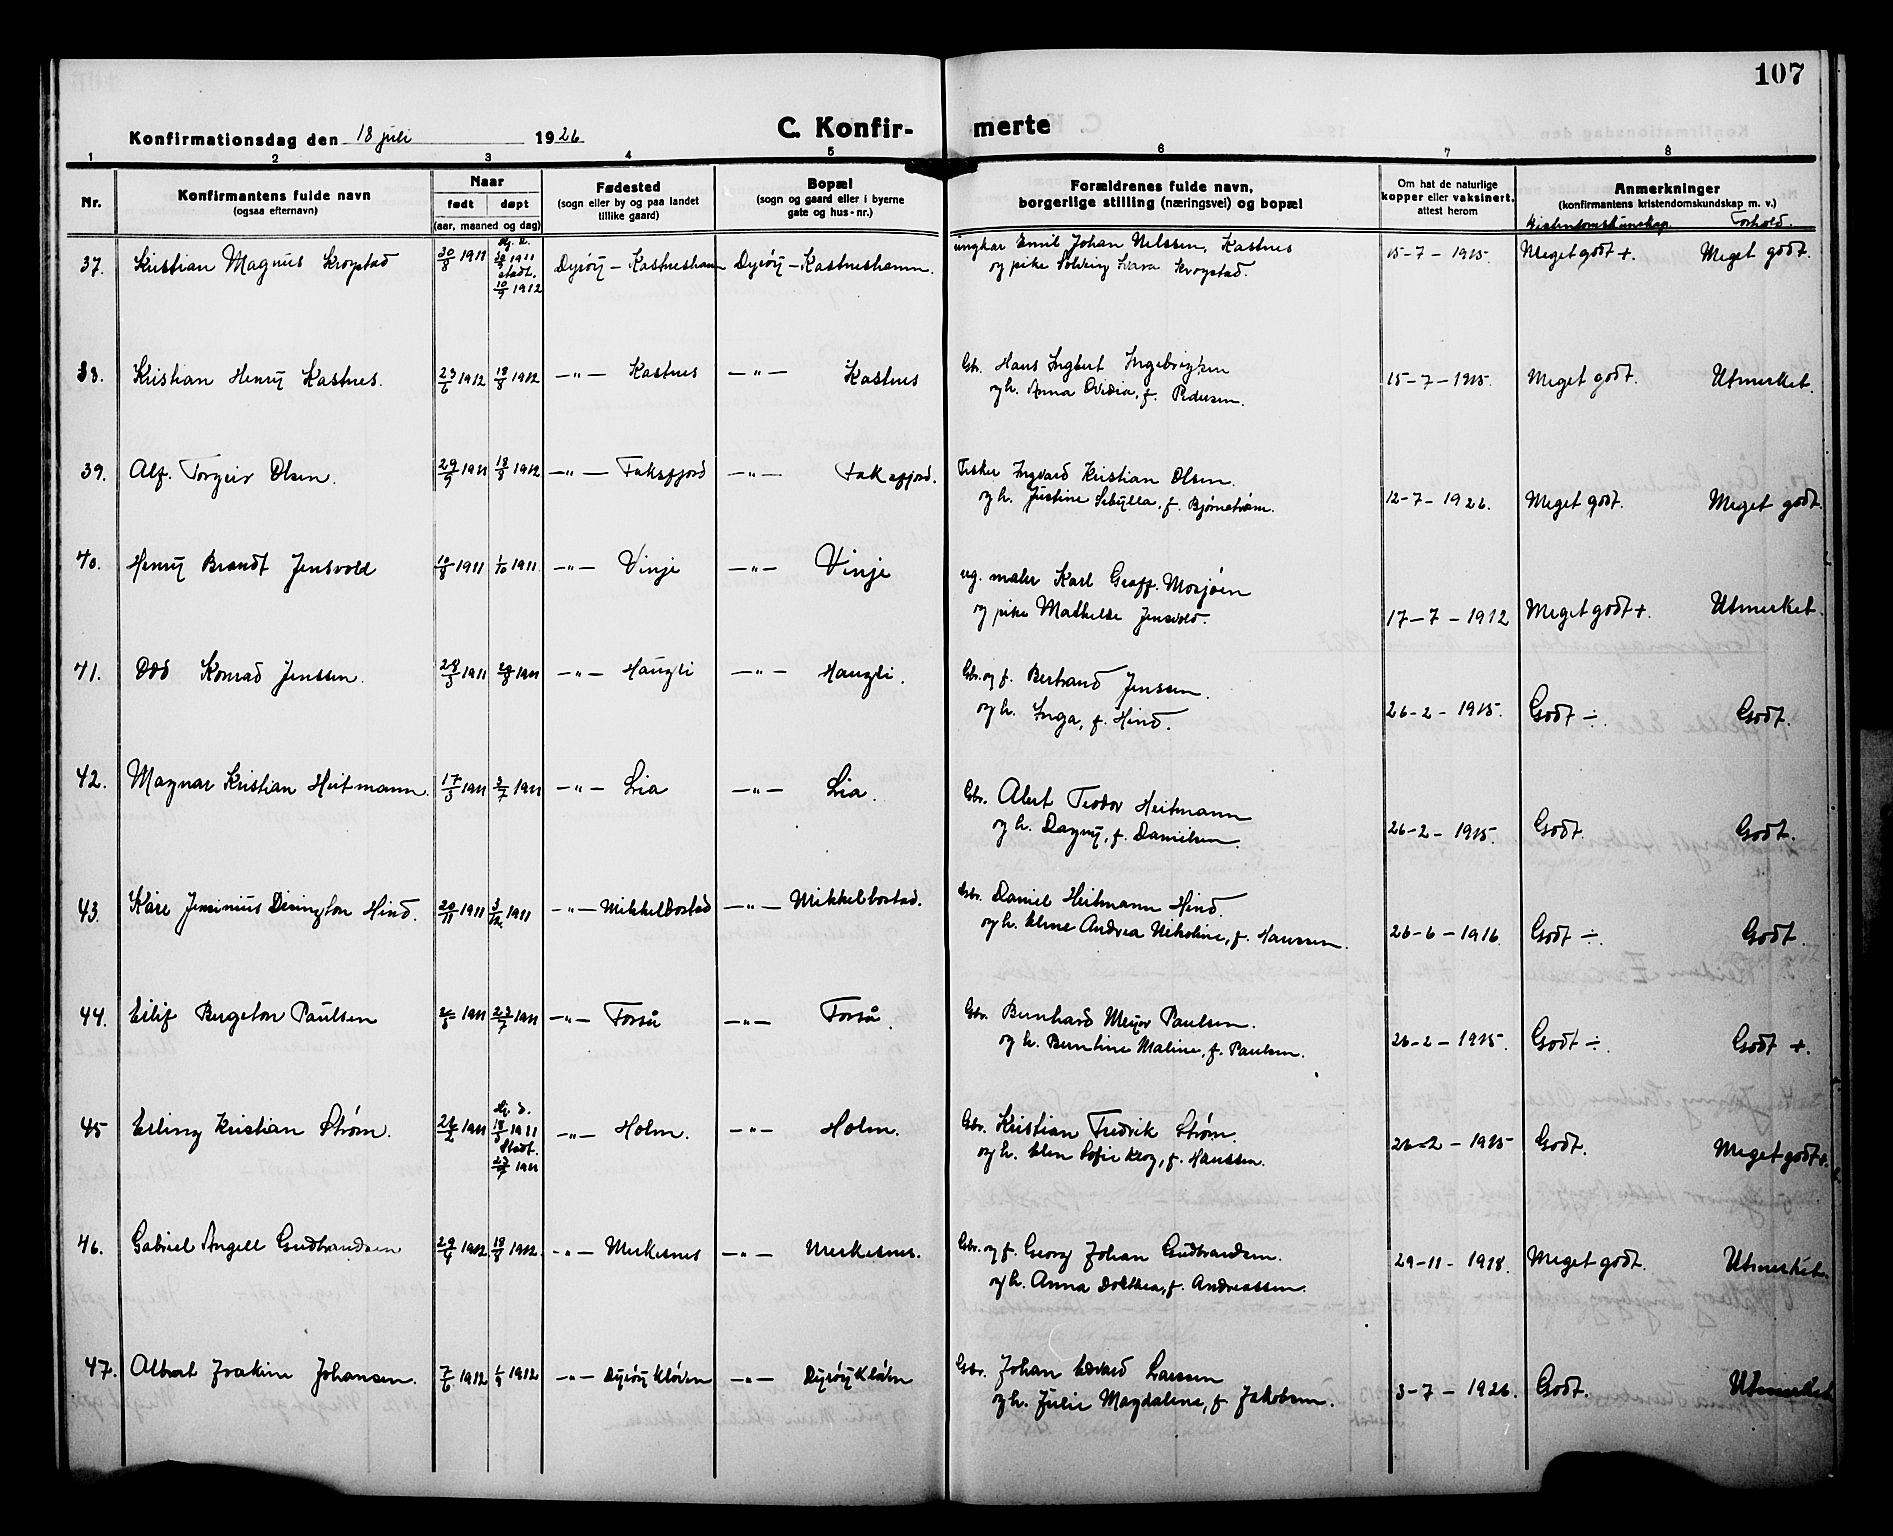 107
Konfirmationsdag den 18 juli 1926
C. Konfir- merte
1 2 3 4 5 6 7 8
Nr.
Konfirmantens fulde navn
(ogsaa efternavn)
Naar
født døpt
(aar, maaned og dag)
Fødested
(sogn eller by og paa landet
tillike gaard)
Bopæl
(sogn og gaard eller i byerne
gate og hus-nr.)
Forældrenes fulde navn,
borgerlige stilling (næringsvei) og bopæl
Om hat de naturlige
kopper eller vaksinert,
attest herom
Anmerkninger
(konfirmantens kristendomskundskap m. v.)
Kristendomskunskap. Forhold.
37. Kristian Magnus Krogstad 30/8 1911 Dyrøy - Kastneshamn Dyrøy - Kastneshamn. ungkar Emil Johan Nilssen, Kastnes 15-7-1915. Meget godt +. Meget godt.
stadf.
10/9 1912
og pike Solveig Krogstad.
38. Kristian Henry Kastnes. 23/6 1912 18/8 1912 -"- Kastnes -"- Kastnes Gbr. Hans Ingbert Ingebrigtsen 15-7-1915. Meget godt. Utmerket.
og h. Anna Ovidia, f. Pedersen.
39. Alf. Torgeir Olsen. 29/9 1911 18/8 1912 -"- Faksfjord -"- Faksfjord. Fisker Ingvard Kristian Olsen.
og h. Justine Sibylla, f. Bjørnstrøm. 12-7-1926. Meget godt. Meget godt.
40. Henry Brandt Jensvold 10/8 1911 1/10 1911. -"- Vinje -"- Vinje ug. maler Karl Graff. Mosjøen
og pike Mathilde Jensvold. 17-7-1912 Meget godt +. Utmerket.
41. Odd Konrad Jenssen. 28/5 1911 20/8 1911 -"- Haugli -"- Haugli. Gbr. og f. Bertrand Jenssen.
og h. Inga, f. Hind. 26-2-1915. Godt ÷. Godt.
42. Magnar Kristian Heitmann. 17/5 1911 2/7 1911 -"- Lia -"- Lia. Gbr. Alert Teodor Heitmann
og h. Dagny, f. Danielsen. 26-2-1915. Godt. Godt.
43. Kåre Jensinius Hind. 20/11 1911 3/12 1911 -"- Mikkelbostad -"- Mikkelbostad. Gbr. Daniel Heitmann Hind.
og h. Andrea Nikoline, f. Hanssen. 26-6-1916. Godt ÷. Godt.
44. Eilif Bergeton Paulsen 1911 23/7 1911 -"- Forså -"- Forså. Gbr. Bernhard Meyer Paulsen.
og h. Berntine Maline, f. Paulsen. 26-2-1915. Godt ÷. Godt +.
45 Erling Kristian Strøm. 26/2 1911 Hj. d.
18/3 1911
Stadf.
23/7 1911
-"- Holm. -"- Holm. Gbr. Kristian Fredrik Strøm.
og h. Elen Sofie Krog, f. Hanssen. 26-2-1915 Godt. Meget godt +.
46. Gabriel Angell Gudbrandsen 29/4 1912 18/8 1912. -"- Merkesnes -"- Merkesnes. Gbr. og f. Georg Johan Gudbrandsen.
og h. Anna Dorthea, f. Andreassen. 29-11-1918. Meget godt. Utmerket.
47. Albert Joakim Johansen. 7/6 1912 1/9 1912 -"- Dyrøykløven -"- Dyrøykløven Gbr. Johan Edvard Larssen
og h. Julie Magdalene, f. Jakobsen. 3-7-1926. Godt. Utmerket